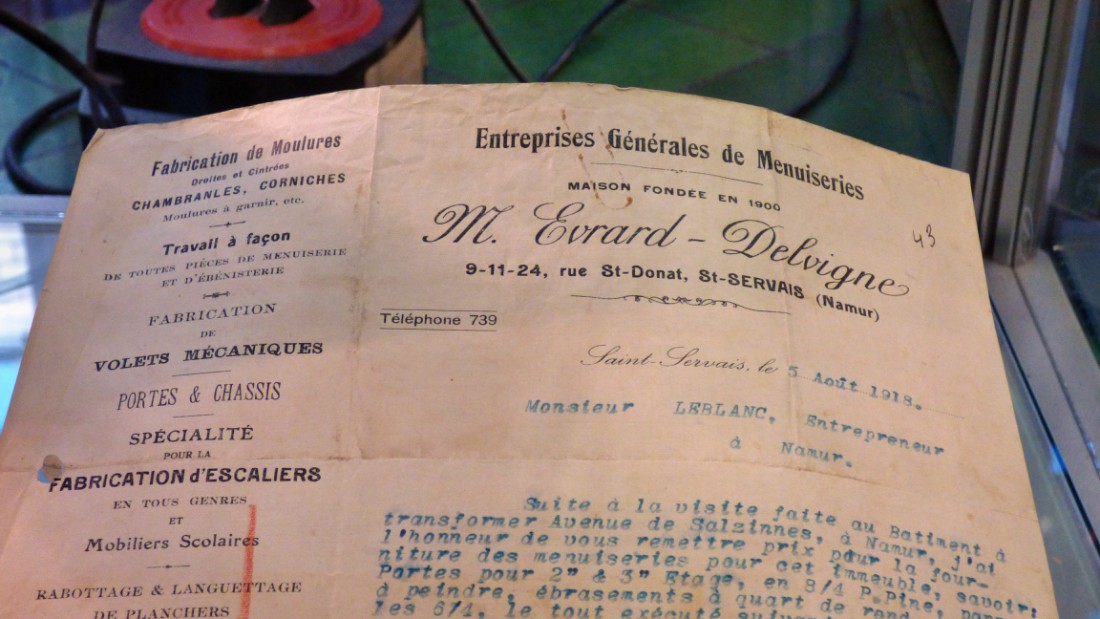 Fabrication de Moulures
Droites et Cintrées
CHAMBRANLES, CORNICHES
Moulures à garnir, etc.
Travail à façon
DE TOUTES PIÈCES DE MENUISERIE
ET D'ÉBÉNISTERIE
FABRICATION
DE
VOLETS MÉCANIQUES
PORTES & CHASSIS
SPÉCIALITÉ
POUR LA
FABRICATION d'ESCALIERS
EN TOUS GENRES
ET
Mobiliers Scolaires
RABOTTAGE & LANGUETTAGE
DE PLANCHERS
Entreprises Générales de Menuiseries
MAISON FONDÉE EN 1900
M. Evrard - Delvigne
9-11-24, rue St-Donat, St-SERVAIS (Namur)
43
Téléphone 739
Saint-Servais, le 5 Août 1918.
Monsieur LEBLANC, Entrepreneur
à Namur.
Suite à la visite faite au Batiment à
transformer Avenue de Salzinnes, à Namur, j'ai
l'honneur de vous remettre prix pour la four-
niture des menuiseries pour cet immeuble, savoir:
Portes pour 2" & 3" Etage, en 8/4 P.Pine,
à peindre, ébrasements à quart de rond,
les 6/4, le tout exécuté